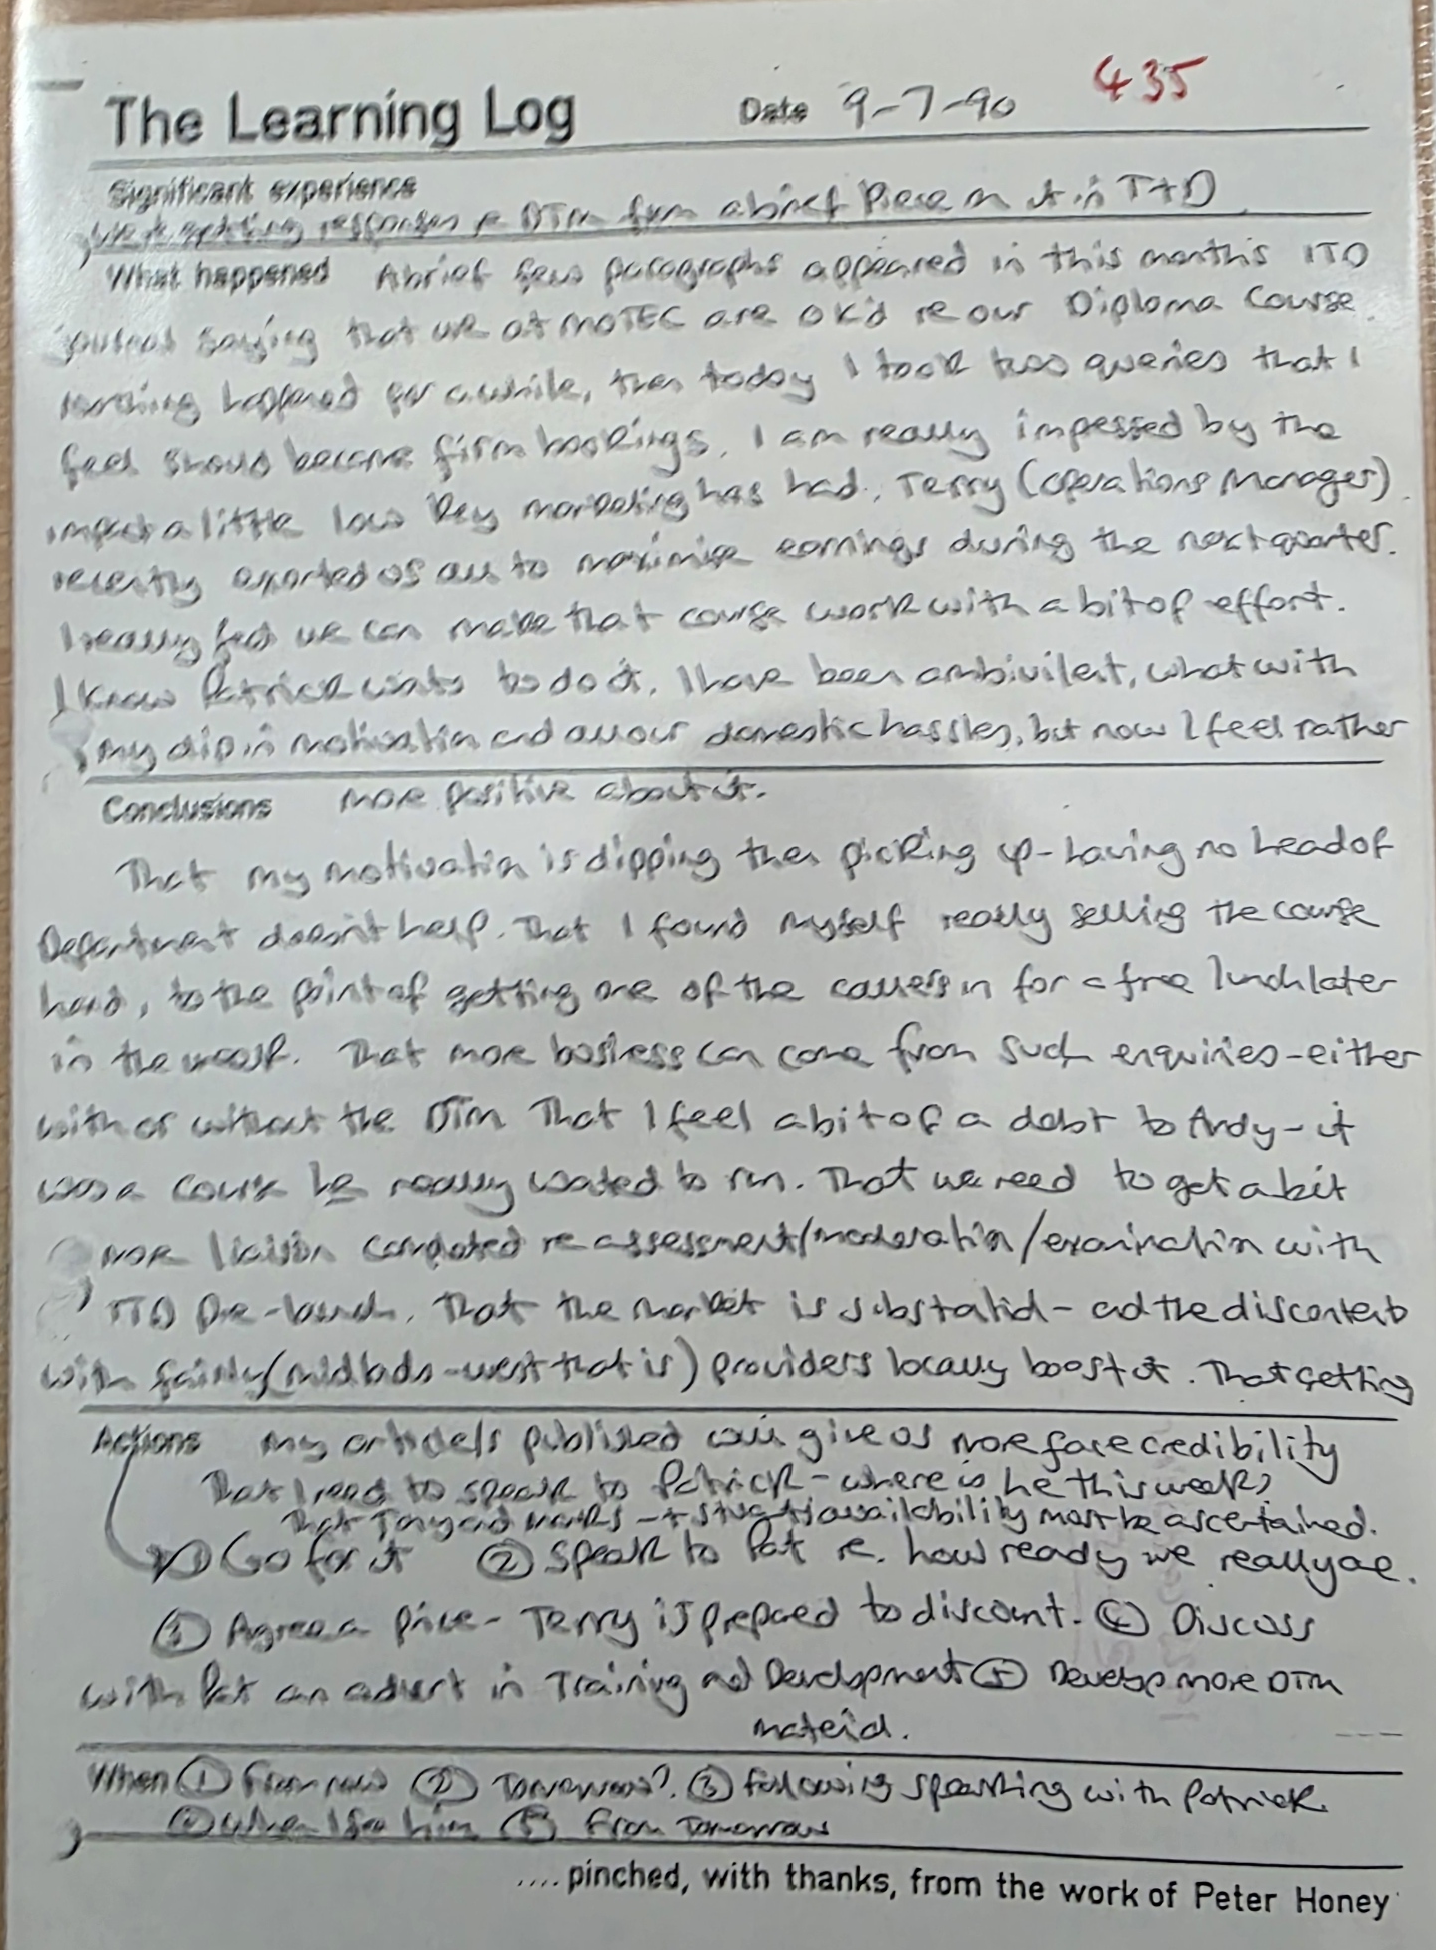 The Learning Log Date 9-7-90 435
Significant experience
responses re DTM from a brief Piece on it in T+D
What happened A brief few paragraphs appeared in this month's ITD
journal saying that we at MOTEC are OK'd re our Diploma Course.
Nothing happened for awhile, then today I took two queries that I
feel should become firm bookings. I am really impessed by the
impact a little low key marketing has had. Terry (Operations Manager)
recently exorted us all to maximise earnings during the next quarter.
I really feel we can make that course work with a bit of effort.
I know Patrick wants to do it. I have been ambivilent, what with
my dip in motivation and all our domestic hassles, but now I feel rather
Conclusions more positive about it.
That my motivation is dipping then picking up - having no head of
Department doesn't help. That I found myself really selling the course
hard, to the point of getting one of the callers in for a free lunch later
in the week. That more business can come from such enquiries - either
with or without the DTM That I feel a bit of a debt to Andy - it
was a course he really wanted to run. That we need to get a bit
more liaison completed re assessment/moderation/examination with
ITD pre-launch. That the market is substantial - and the discontent
with fairly (midlands - west that is) providers locally boost it. That getting
Actions my articles published will give us more face credibility
That I need to speak to Patrick - where is he this week?
That availability must be ascertained.
① Go for it ② Speak to Pat re. how ready we really are.
③ Agree a price - Terry is prepared to discount. ④ Discuss
with Pat an advert in Training and Development ⑤ Develop more DTM
material.
When ① From now ② Tomorrow? ③ Following speaking with Patrick
④ When I see him ⑤ From Tomorrow
.... pinched, with thanks, from the work of Peter Honey